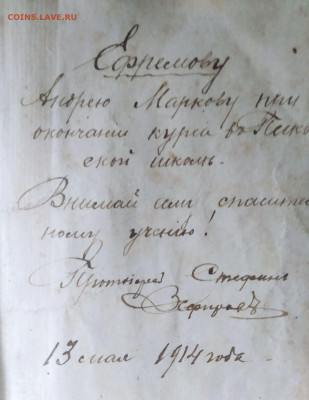 COINS.LAVE.RU
Ефремову
Андрею Маркову при
окончании курса въ
ской школѣ.
Внимай сему спаситель
ному учению!
Протоіерей Стефанъ
13 мая 1914 года.